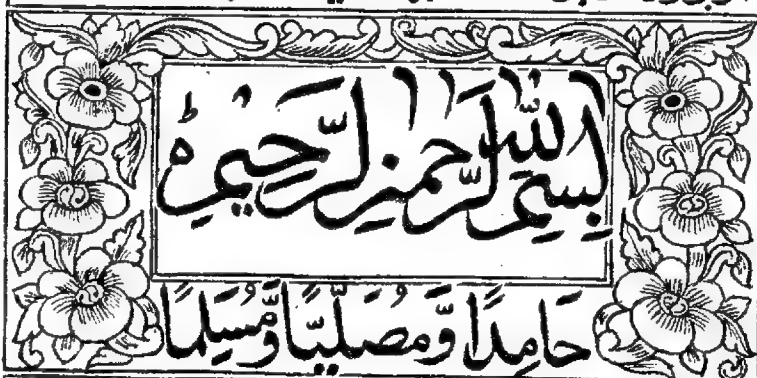 بِسْمِ اللهِ الرَّحْمٰنِ الرَّحِيْمِ
حَامِدًا وَّمُصَلِّيًا وَّمُسَلِّمًا